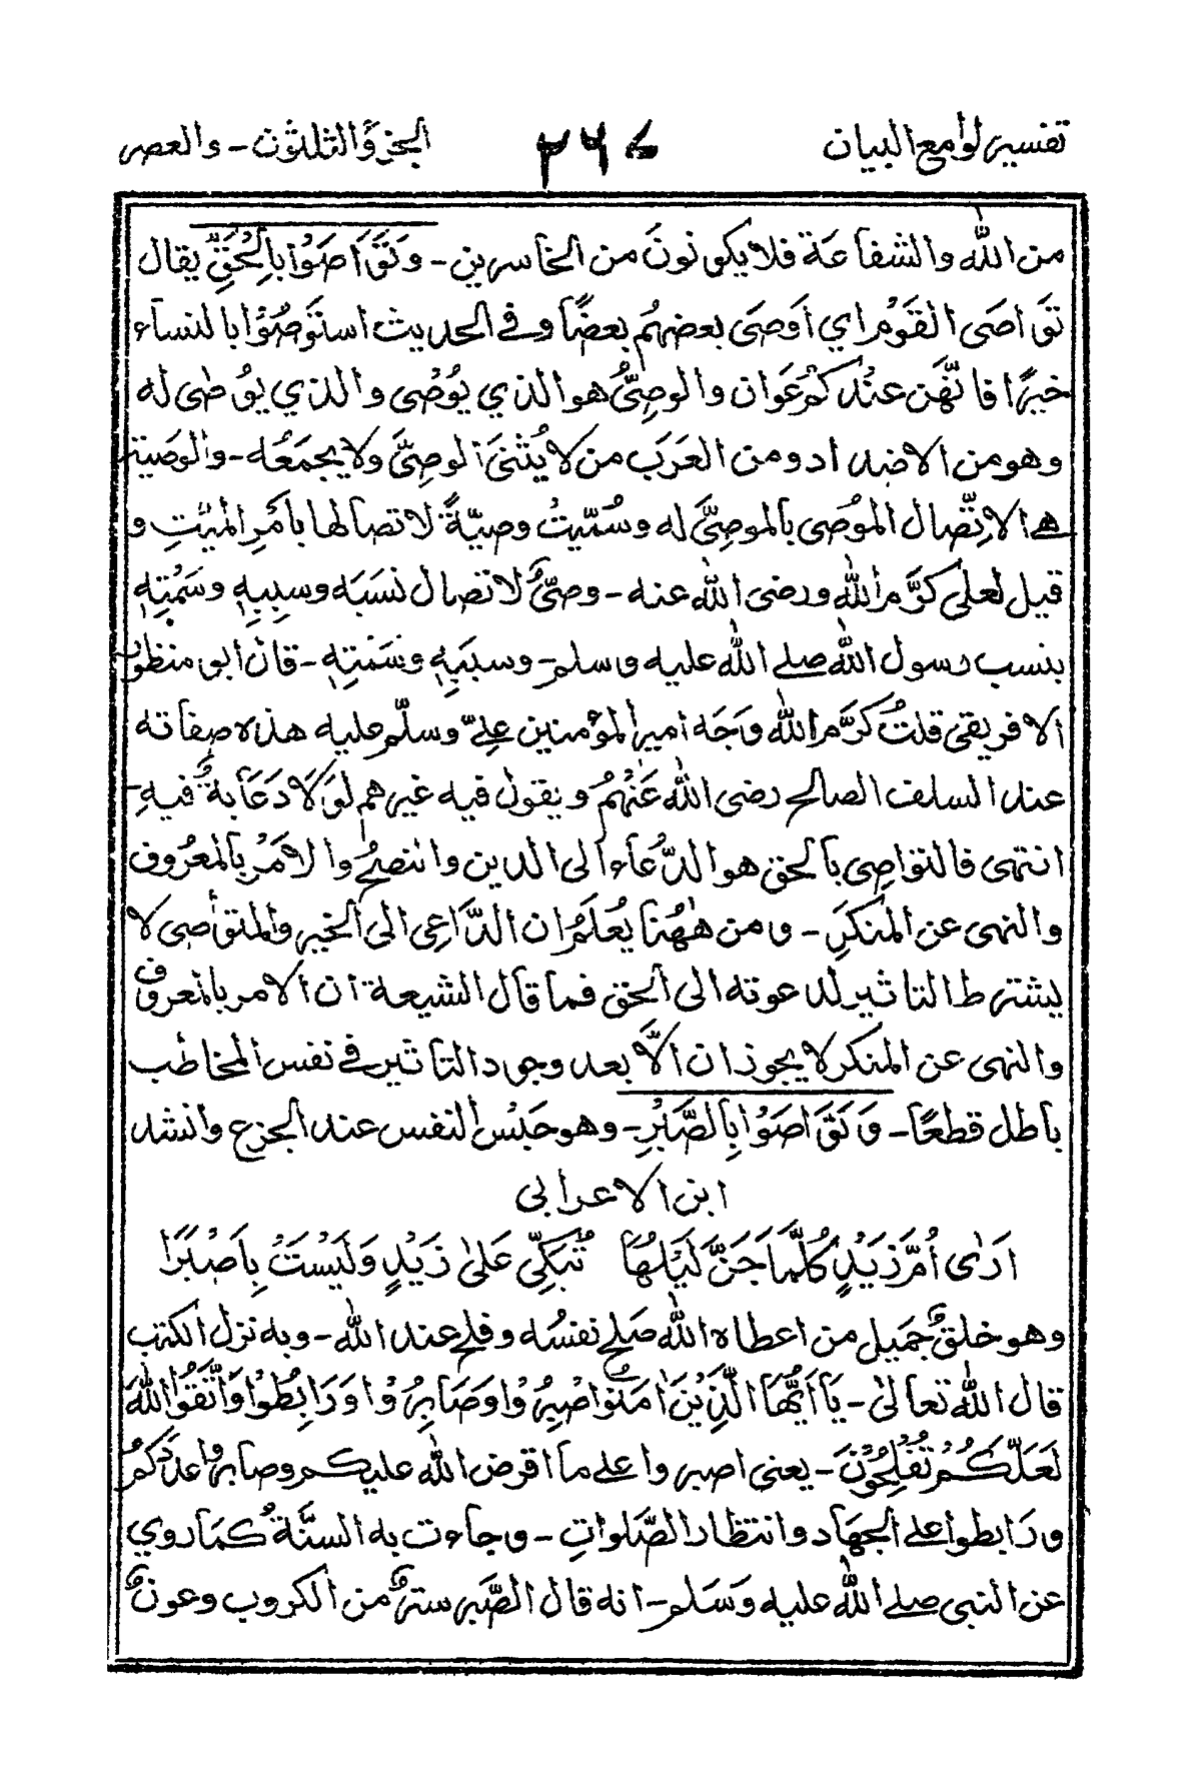 تفسير لوامع البيان ٣٦٤ الجزء الثلثون - والعصر
من الله والشفاعة فلا يكونونَ من الخاسرين - وَتَوَاصَوْا بِالْحَقِّ يقال
تَوَاصَى القَوْم اي أَوصَى بعضهُم بعضًا وفي الحديث استَوْصُوْا بالنساء
خيرًا فانّهَن عنْدكُمْ عَوَان والوصِيُّ هو الذي يُوْصٰى والذي يوُصٰى له
وهو من الاضداد ومن العَرَب من لا يُثْنَى الوصِيَّ ولا يجمَعُه - والوصَية
هي الاتِّصال الموُصى بالموصِيَّ له وسُمّيتْ وصيّةً لاتصالها بأَمرِ الميّتِ و
قيل لعلى كرَّم الله ورضى الله عنه - وصىٌّ لاتصال نسَبَه وسببِهٖ وسَمْتِهٖ
بنسب رسول الله صلى الله عليه وسلم - وسببَهٖ وسَمْتِهٖ - قال ابو منظور
الافريقى قلتُ كرَّم الله وَجَه امير المؤمنين علىّ وسلّم عليه هذه صِفاته
عند السلف الصالح رضى الله عَنْهُمْ ويقول فيه غيرهم لوَلا دَعَابةٌ فيهِ -
انتهى فالتواصِى بالحق هو الدُّعاء الى الدين والنصحُ والامَرْ بالمعرُوف
والنهى عن المنكرَ - ومن هٰهُنا يُعْلَمُ ان الدَّاعِى الى الخير والمتوَاصِى لا
يشترط التاثير لدعوته الى الحق فما قال الشيعة ان الامر بالمعروف
والنهى عن المنكر لا يجوزان الاَّ بعد وجود التاثير في نفس المخاطب
باطل قطعًا - وَتَوَاصَوْا بِالصَّبْرِ - وهو حَبْس النفس عند الجزع وانشد
ابن الاعرابى
اَرٰى اُمَّ زَيْدٍ كُلَّمَا جَنَّ لَيْلُهَا تُبَكِّى عَلىٰ زَيْدٍ وَلَيْسَتْ بِاَصْبَرَا
وهو خلقٌ جَميل من اعطاه الله صَلح نفسُه وفلح عند الله - وبه نزل الكتٰب
قال الله تعالىٰ - يَا اَيُّهَا الَّذِيْنَ اٰمَنُوا اصْبِرُوْا وَصَابِرُوْا وَرَابِطُوْا وَاتَّقُوا اللهَ
لَعَلَّكُمْ تُفْلِحُوْنَ - يعنى اصبروا على ما افرض الله عليكم وصابروا عدَّكمْ
ورَابطوا على الجهَاد وانتظار الصَّلوٰاتِ - وجاءت به السنَّةُ كمَا روي
عن النبى صلى الله عليه وَسَلم - انه قال الصَّبر سترٌ من الكروب وعونٌ